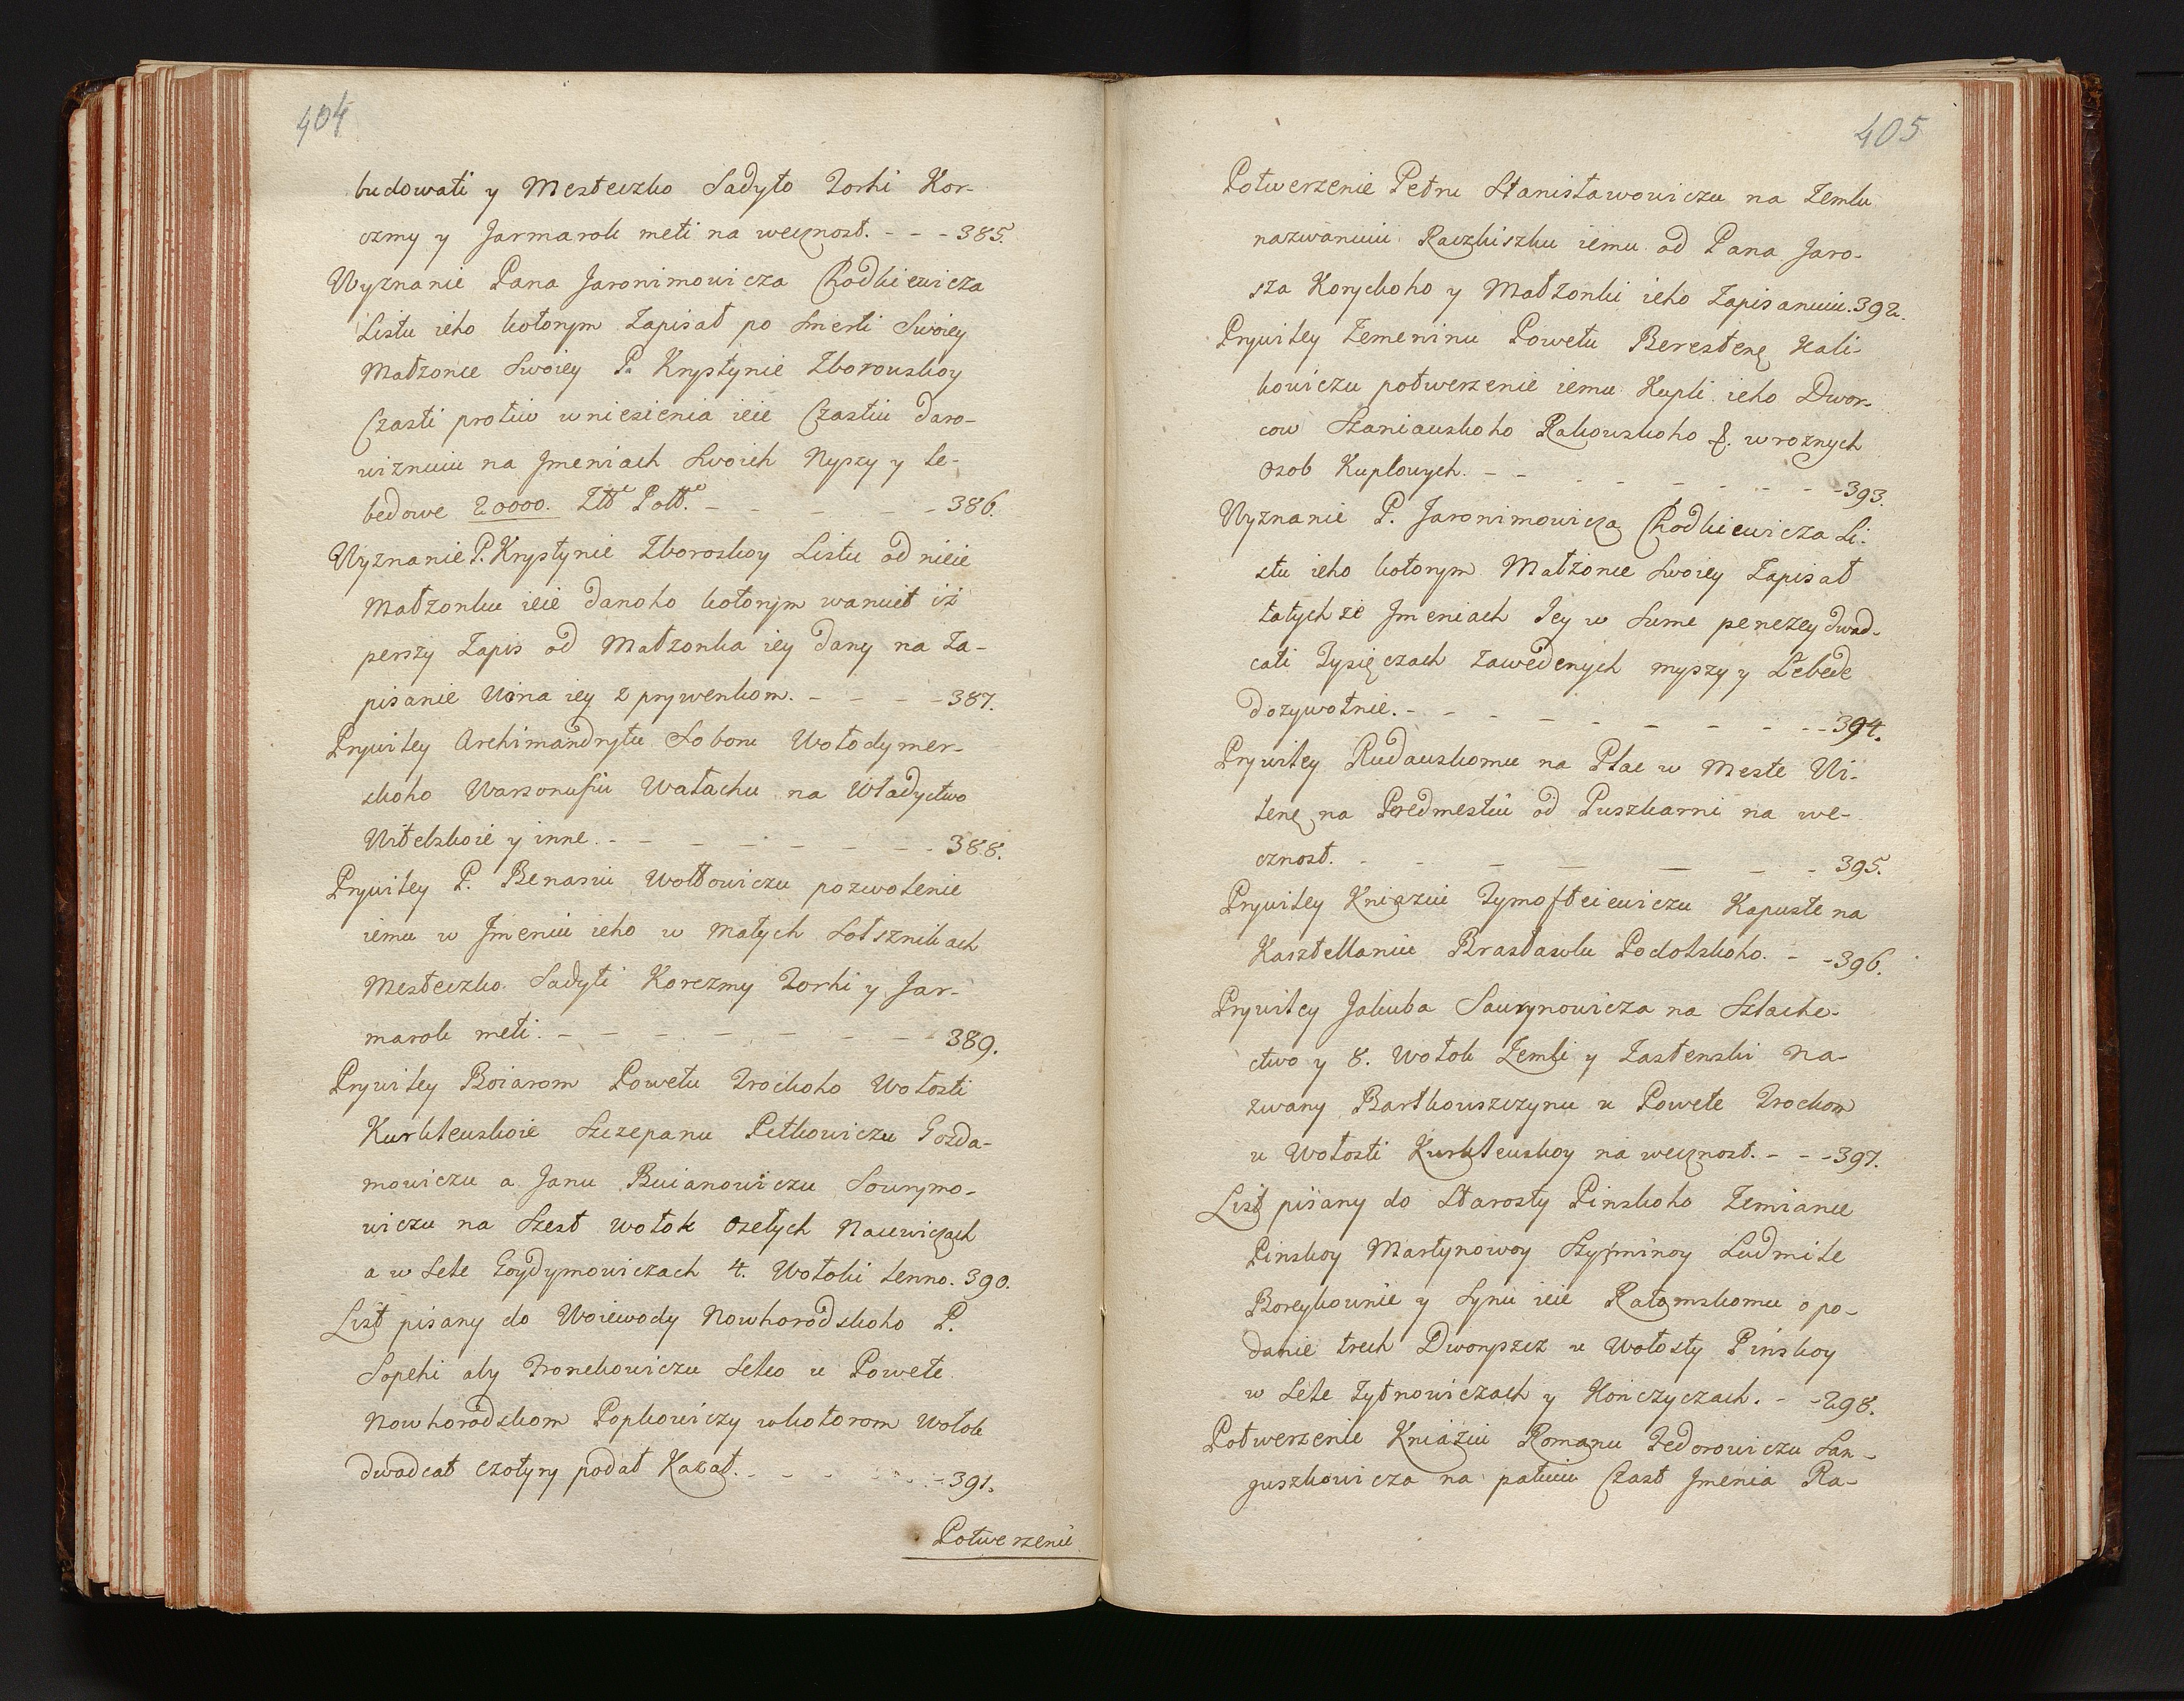 404
budowati y Mesteczko Sadyto Torhi Kor-
czmy y Jarmarok meti na wecznost. - - - 385.
Wyznanie Pana Jaronimowicza Chodkiewicza
Listu ieho kotorym Zapisał po Smerti Swoiey
Małzonce Swoiey P. Krystynie Zborouskoy
Czasti protiw wniesienia ieie Czastiu daro-
wiznuiu na Jmeniach Swoich Myszy y Le-
bedowe 20000. Złł Poll. - - - - - 386.
Wyznanie P. Krystynie Zboroskoy Listu od nieie
Małzonku ieie danoho kotorym waruiet iż
perszy Zapis od Małzonka iey dany na Za-
pisanie Wina iey z prywenkom. - - - - 387.
Prywiley Archimandrytu Soboru Wołodymer-
skoho Warsonufiu Wałachu na Władyctwo
Witebskoie y inne. - - - - - - - - 388.
Prywiley P. Benasiu Wołłowiczu pozwolenie
iemu w Jmeniu ieho w Małych Sołsznikach
Mesteczko Sadyti Korczmy Torhi y Jar-
marok meti. - - - - - - - - 389.
Prywiley Boiarom Powetu Trockoho Wołosti
Kurkleuskoie Szczepanu Petkowiczu Gozda-
mowiczu a Janu Buianowiczu Sourymo-
wiczu na Szest wołok Osełych Nacewiczach
a w Sele Goydymowiczach 4. Wołoki lenno. 390.
List pisany do Woiewody Nowhorodskoho P.
Sopehi aby Proneikowiczu Seło u Powete
Nowhorodskom Popkowiczy w kotorom Wołok
dwadcat czotyry podat Kazał. - - - - - 391.
Potwerzenie
405
Potwerzenie Petru Stanisławowiczu na Zemlu
nazwanuiu Raczkiszku iemu od Pana Jaro-
sza Koryckoho y Małzonki ieho Zapisanuiu. 392.
Prywiley Zemeninu Powetu Berestenę Kali-
kowiczu potwerzenie iemu Kupli ieho Dwor-
cow Szaniauskoho Rakouskoho &. w roznych
Osob Kuplowych. - - - - - - - - 393.
Wyznanie P. Jaronimowicza Chodkiewicza Li-
stu ieho kotorym Małżonce Swoiey Zapisał
tatych że Jmeniach Jey w Sume penezey dwad-
cati Tysięczach Zawedenych myszy y Lebede
dozywotnie. - - - - - - - - 394.
Prywiley Rudauskomu na Plac w Meste Wi-
lenę na Peredmestiu od Puszkarni na we-
cznost. - - - - - - 395.
Prywiley Kniaziu Tymofteiewiczu Kapuste na
Kasztellaniu Brasłasolu Podolskoho. - - 396.
Prywiley Jakuba Saurynowicza na Szlache-
ctwo y 8. Wołok Zemli y Zastenski Na-
zwany Bartkouszczynu u Powete Trockom
u Wołosti Kurkleuskoy na wecznost. - - - 397.
List pisany do Starosty Pinskoho Zemiance
Pinskoy Martynowoy Szyrminoy Ludmile
Boreykownie y Synu ieie Ratomskomu o po-
danie trech Dworyszcz u Wołosty Pinskoy
w Sele Zytnowiczach y Konczyczach. - - 298.
Potwerzenie Kniaziu Romanu Fedorowiczu San-
guszkowicza na pałuiu Czast Jmenia Ra-